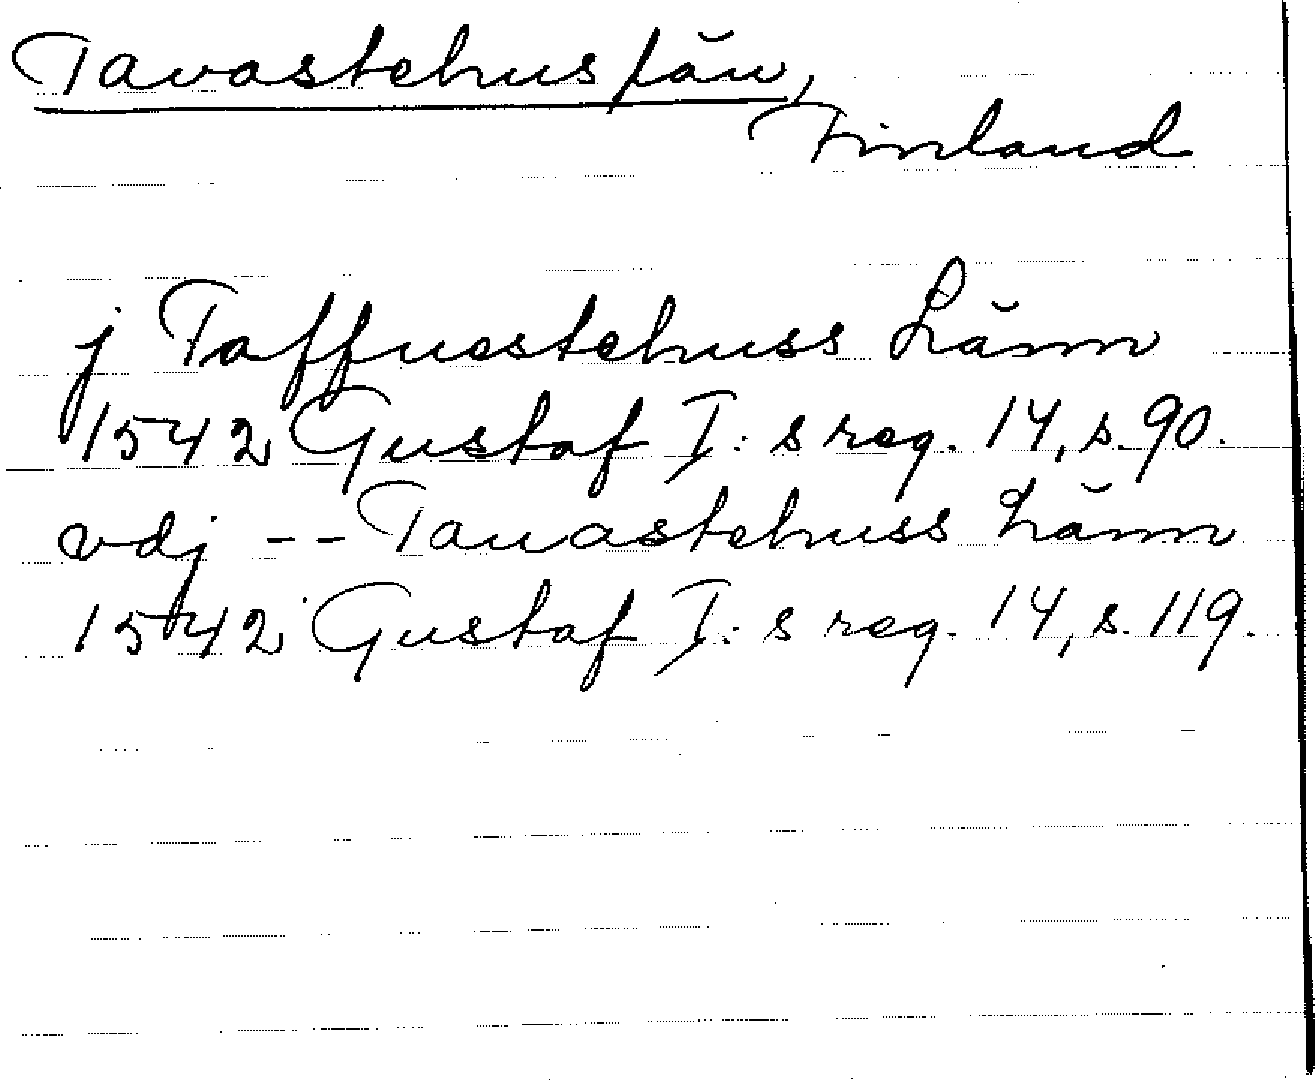 Tavastehus län,
Finland
j Taffuestehuss Länn
1542 Gustaf I:s reg. 14, s. 90.
vdj -- Tauastehuss Länn
1542 Gustaf I:s reg. 14, s. 119.